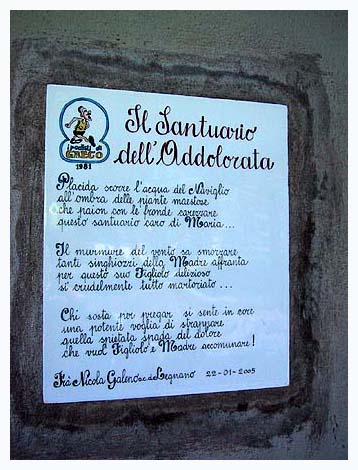 i podisti di
GRECO
1981
Il Santuario
dell'Addolorata
Placida scorre l'acqua del Naviglio
all'ombra delle piante maestose
che paion con le fronde carezzare
questo santuario caro di Maria...
Il murmure del vento sa smorzare
tanti singhiozzi della Madre affranta
per questo suo Figliolo delizioso
sì crudelmente tutto martoriato ...
Chi sosta per pregar si sente in core
una potente voglia di strappare
quella spietata spada del dolore
che vuol Figliolo e Madre accomunare!
Frà Nicola Galeno o.c.d. Legnano 22-01-2005